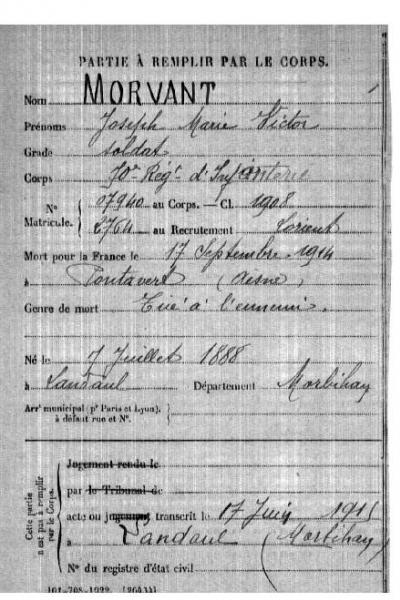 PARTIE À REMPLIR PAR LE CORPS.
Nom MORVANT
Prénoms Joseph Marie Victor
Grade soldat
Corps Rég^t d'Infanterie
N° 07940 au Corps. — Cl. 1908
Matricule. 2764 au Recrutement Lorient
Mort pour la France le 17 Septembre 1914
à Pontavert (Aisne)
Genre de mort Tué à l'ennemi.
Né le 7 Juillet 1888
à Landaul Département Morbihan
Arr^t municipal (p^r Paris et Lyon),
à défaut rue et N°.
Cette partie
n'est pas à remplir
par le Corps.
Jugement rendu le
par le Tribunal de
acte ou jugement transcrit le 17 Juin 1915
à Landaul (Morbihan)
N° du registre d'état civil
101-708-1922. [26434]